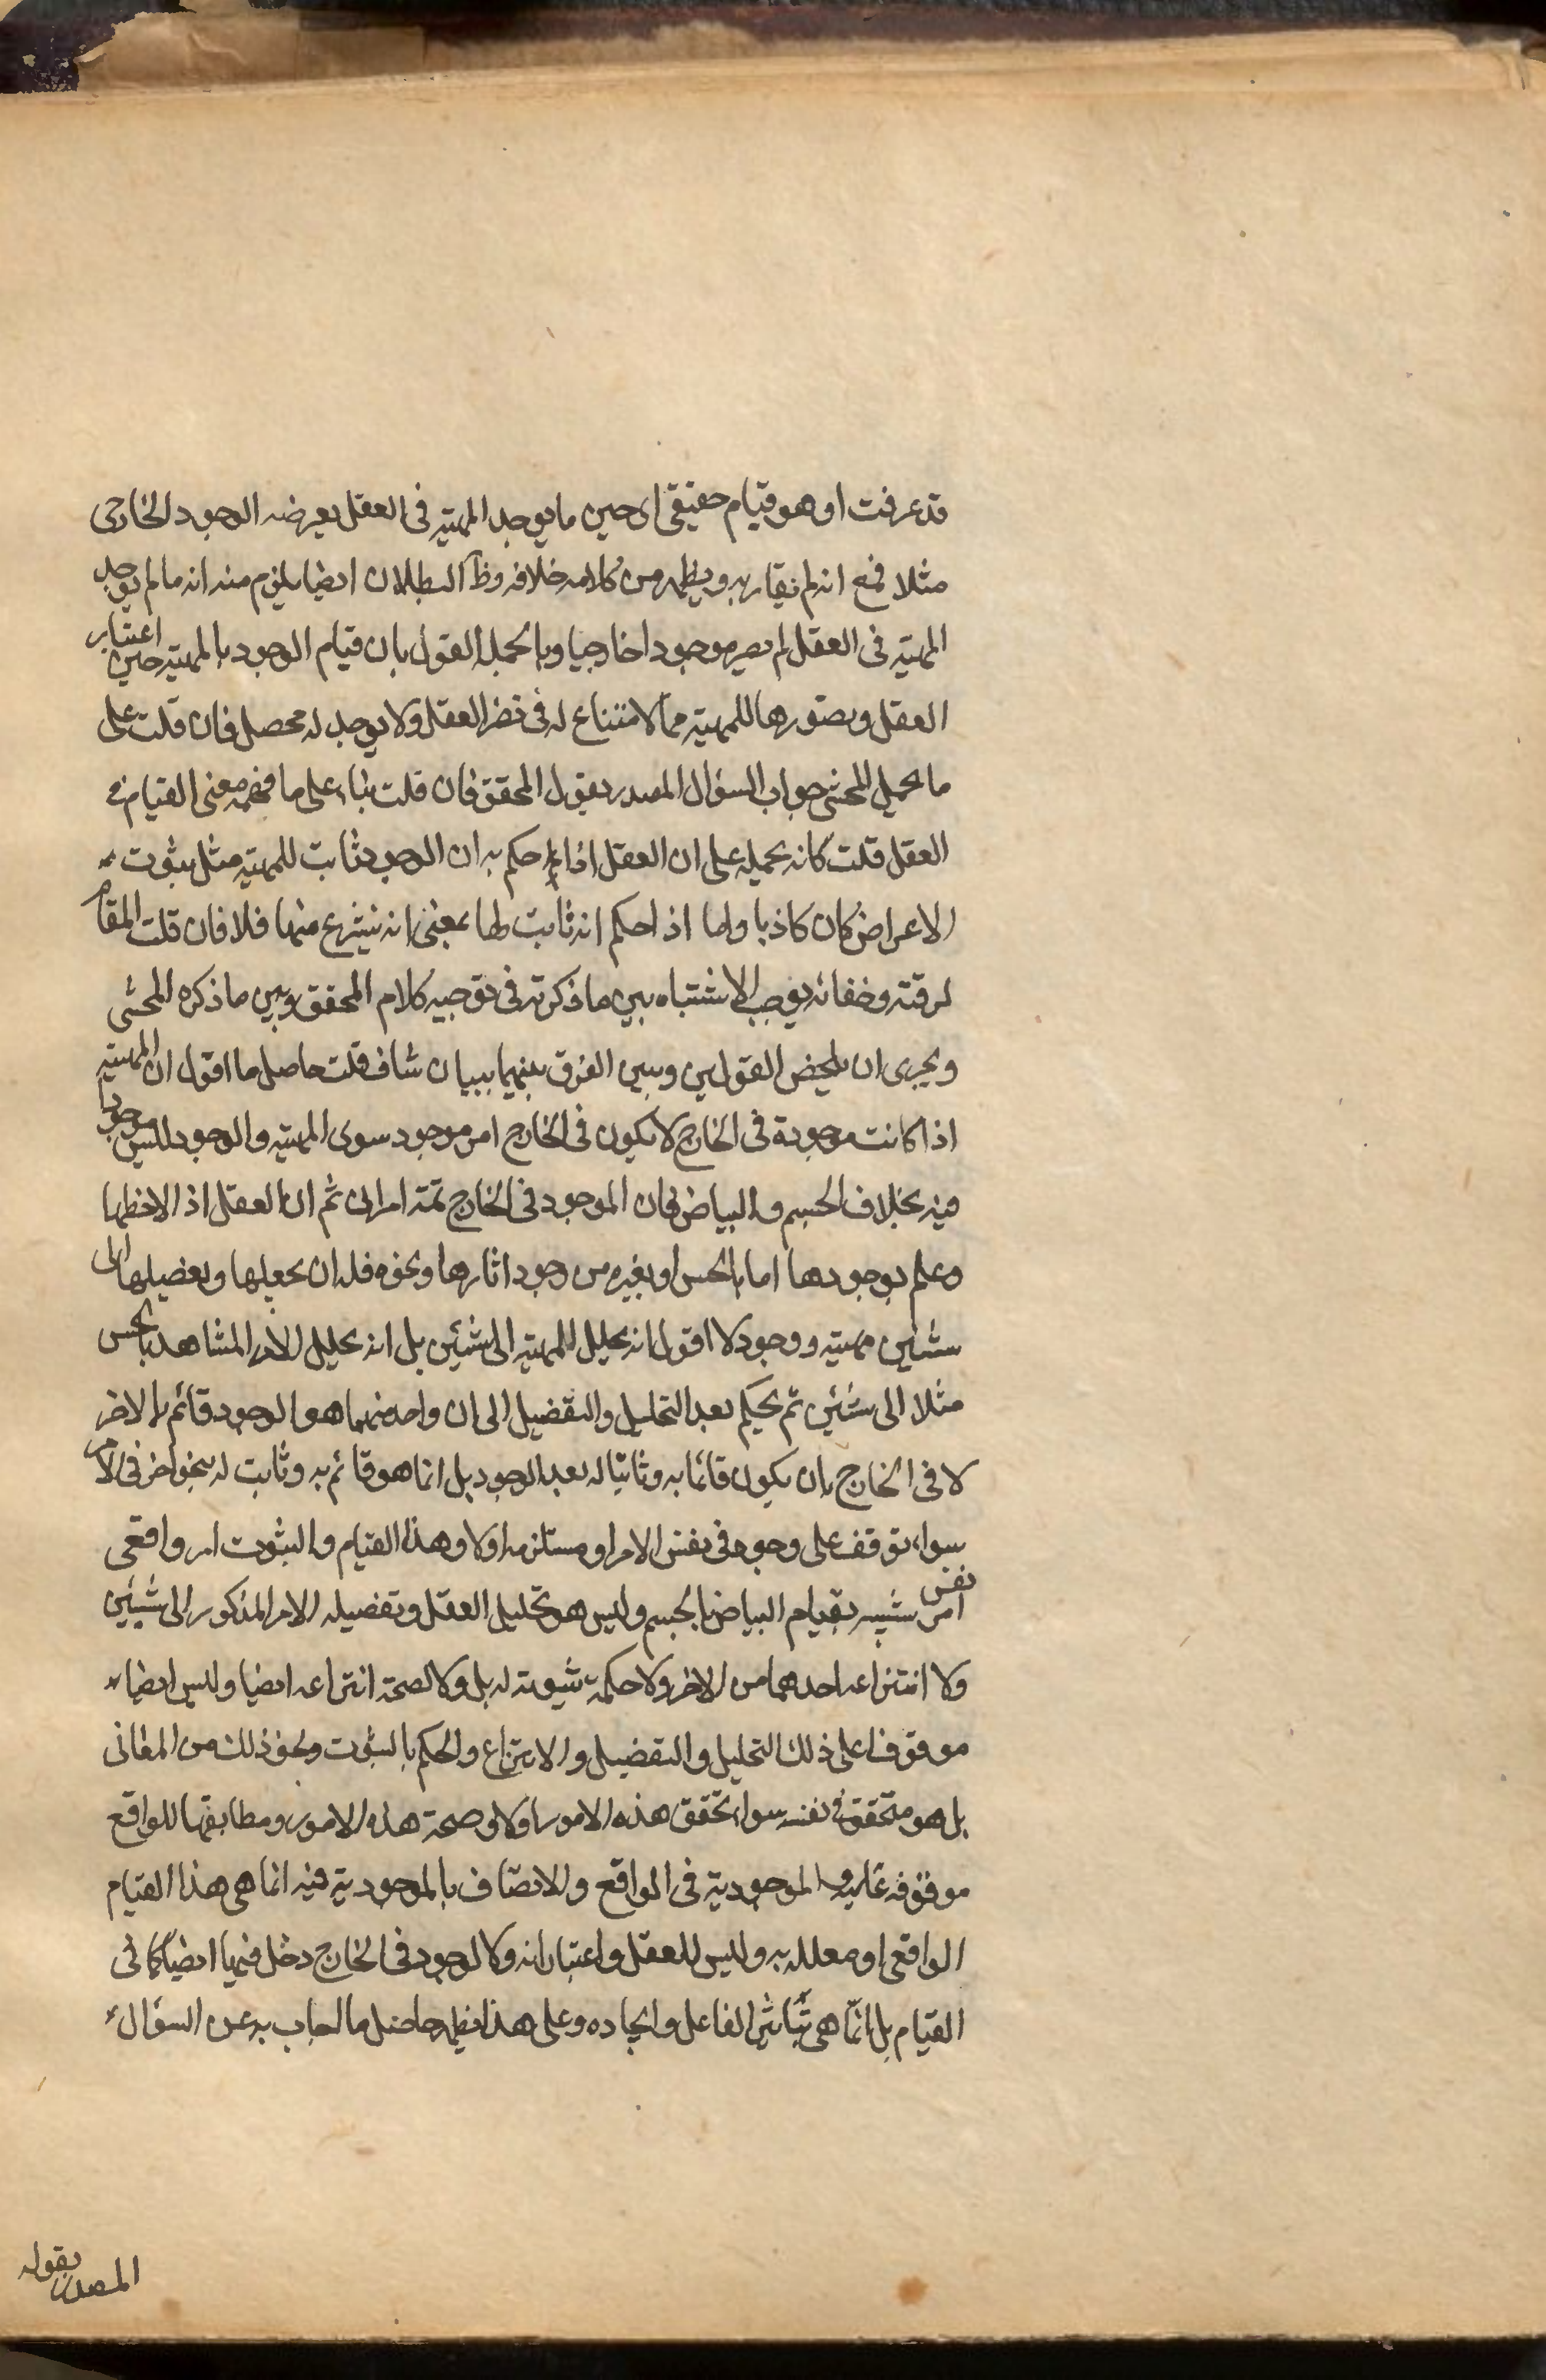 قد عرفت او هو قيام حقيقى اى حين ما يوجد المهية فى العقل يعرضه الوجود الخارجى
مثلا فمع انه لم يقل به ويظهر من كلامه خلافه وظ البطلان ايضا يلزم منه انه ما لم يوجد
المهية فى العقل لم يصر موجودا خارجيا وبالجملة القول بان قيام الوجود بالمهية حين اعتبار
العقل وتصورها للمهية مما لا متناع له فى نظر العقل ولا يوجد له محصل فان قلت على
ما يحمل المحشى جواب السؤال المصدر بقول المحقق فان قلت بناء على ما فهمه معنى القيام فى
العقل قلت كانه يحمله على ان العقل اذا حكم به ان الوجود ثابت للمهية مثل ثبوت
الاعراض كان كاذبا واما اذا حكم انه ثابت لها بمعنى انه ينتزع منها فلا فان قلت المقام
لرقته وخفائه يوجب الاشتباه بين ما ذكرته فى توجيه كلام المحقق وبين ما ذكره المحشى
ويجرى ان يلخص القولين ويبين الفرق بينهما ببيان شاف قلت حاصل ما اقول ان المهية
اذا كانت موجودة فى الخارج لا يكون فى الخارج امر موجود سوى المهية والوجود ليس موجودا
فيه بخلاف الجسم والبياض فان الموجود فى الخارج ثمة امران ثم ان العقل اذ الاحظها
وعلم بوجودها اما بالحس او بغيره من وجود اثارها ونحوه فله ان يجعلها ويفصلها الى
شيئين مهية ووجود لا اقول انه يحلل المهية الى شيئين بل انه يحلل الامر المشاهد بالحس
مثلا الى شيئين ثم يحكم بعد التحليل والتفصيل الى ان واحد منهما هو الوجود قائم بالاخر
لا فى الخارج بان يكون قائما به وثابتا له بعد الوجود بل انما هو قائم به وثابت له بنحو اخر فى الامر
سواء توقف على وجوده فى نفس الامر او مستلزم اولا وهذا القيام والثبوت امر واقعى
نفس امرى شبيه بقيام البياض بالجسم وليس هو تحليل العقل وتفصيله الامر المذكور الى شيئين
ولا انتزاعه احدهما من الاخر ولا حكمه بثبوته له بل ولا لصحة انتزاعه ايضا وليس ايضا
موقوفا على ذلك التحليل والتفصيل والانتزاع والحكم بالثبوت ونحو ذلك من المعانى
بل هو متحقق فى نفسه سواء تحقق هذه الامور اولا وصحة هذه الامور ومطابقتها للواقع
موقوفة عليه والموجودية فى الواقع والاتصاف بالموجودية فيه انما هى هذا القيام
الواقعى او معلله به وليس للعقل واعتباراته ولا لوجود فى الخارج دخل فيها ايضا كما فى
القيام بل انما هى بتاثير الفاعل وايجاده وعلى هذا فيظهر حاصل ما اجاب به عن السؤال
المصدر بقوله